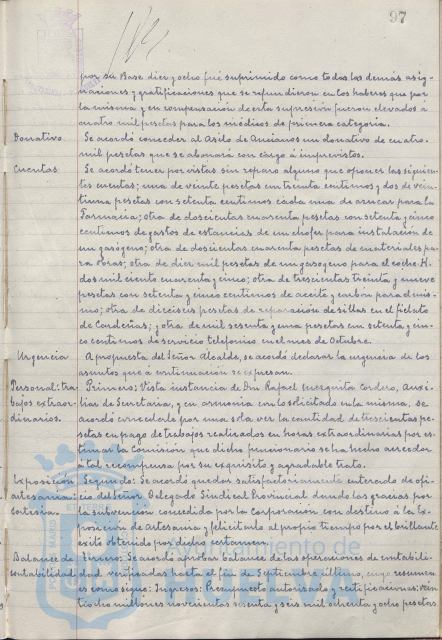 97
por su Base diez y ocho fué suprimido como todas las demás asig-
naciones y gratificaciones que se refundieron en los haberes que por
la misma y en compensación de esta supresión fueron elevados á
cuatro mil pesetas para los médicos de primera categoría.
Donativo Se acordó conceder al Asilo de Ancianos un donativo de cuatro
mil pesetas que se abonará con cargo á imprevistos.
Cuentas Se acordó tener por vistas sin reparo alguno que oponer las siguien-
tes cuentas; una de veinte pesetas con treinta centimos y dos de vein-
tiuna pesetas con setenta centimos cada una de azucar para la
Farmacia; otra de doscientas cuarenta pesetas con setenta y cinco
centimos de gastos de estancias de un chofer para instalación de
un gasógeno; otra de doscientas cuarenta pesetas de materiales pa-
ra obras; otra de diez mil pesetas de un gasogeno para el coche H.
dos mil ciento cuarenta y cinco; otra de trescientas treinta y nueve
pesetas con setenta y cinco centimos de aceite y carbon para el mis-
mo; otra de dieciseis pesetas de reparación de sillas en el fielato
de Cardeñas; y otra de mil sesenta y una pesetas con setenta y cin-
co centimos de servicio telefonico en el mes de Octubre.
Urgencia A propuesta del Señor Alcalde, se acordó declarar la urgencia de los
asuntos que á continuación se expresan.
Personal: tra- Primero: Vista instancia de Don Rafael Mezquita Cordero, Auxi-
bajos extraor- liar de Secretaria, y en armonia con lo solicitado en la misma, se
dinarios. acordó concederle por una sola vez la cantidad de trescientas pese-
tas en pago de trabajos realizados en horas extraordinarias por es-
timar la Comisión que dicho funcionario se ha hecho acreedor
á tal recompensa por su exquisito y agradable trato.
Exposición Segundo: Se acordó quedar satisfactoriamente enterado de ofi-
artesania: cio del Señor Delegado Sindical Provincial dando las gracias por
cortesia. la subvencion concedida por la Corporación con destino á la Ex-
posicion de Artesania y felicitarle al propio tiempo por el brillante
exito obtenido por dicho certamen.
Balance de Tercero: Se acordó aprobar balance de las operaciones de contabili-
contabilidad dad verificadas hasta el fin de Septiembre ultimo, cuyo resumen
es como sigue: Ingresos: Presupuesto autorizado y rectificaciones: vein-
tiocho millones novecientas setenta y seis mil ochenta y ocho pesetas
Ayuntamiento de